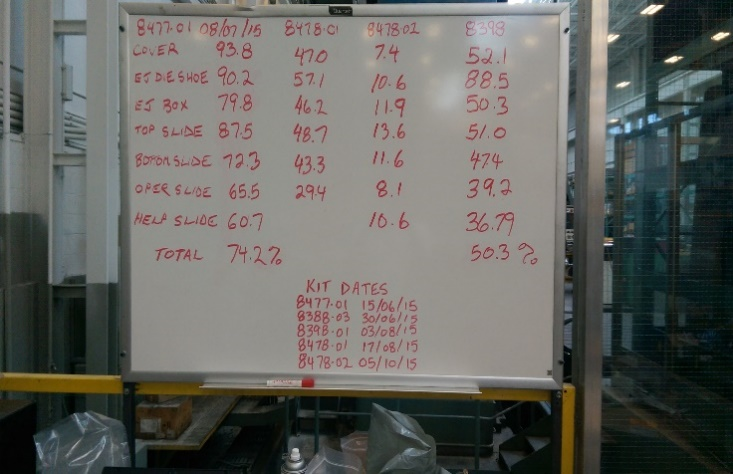 8477-01 08/07/15 8478-01 8478-02 8398
COVER 93.8 47.0 7.4 52.1
EJ DIE SHOE 90.2 57.1 10.6 88.5
EJ BOX 79.8 46.2 11.9 50.3
TOP SLIDE 87.5 48.7 13.6 51.0
BOTOM SLIDE 72.3 43.3 11.6 47.4
OPER SLIDE 65.5 29.4 8.1 39.2
HELP SLIDE 60.7 10.6 36.79
TOTAL 74.2% 50.3%
KIT DATES
8477-01 15/06/15
8388-03 30/06/15
8398-01 03/08/15
8478-01 17/08/15
8478-02 05/10/15